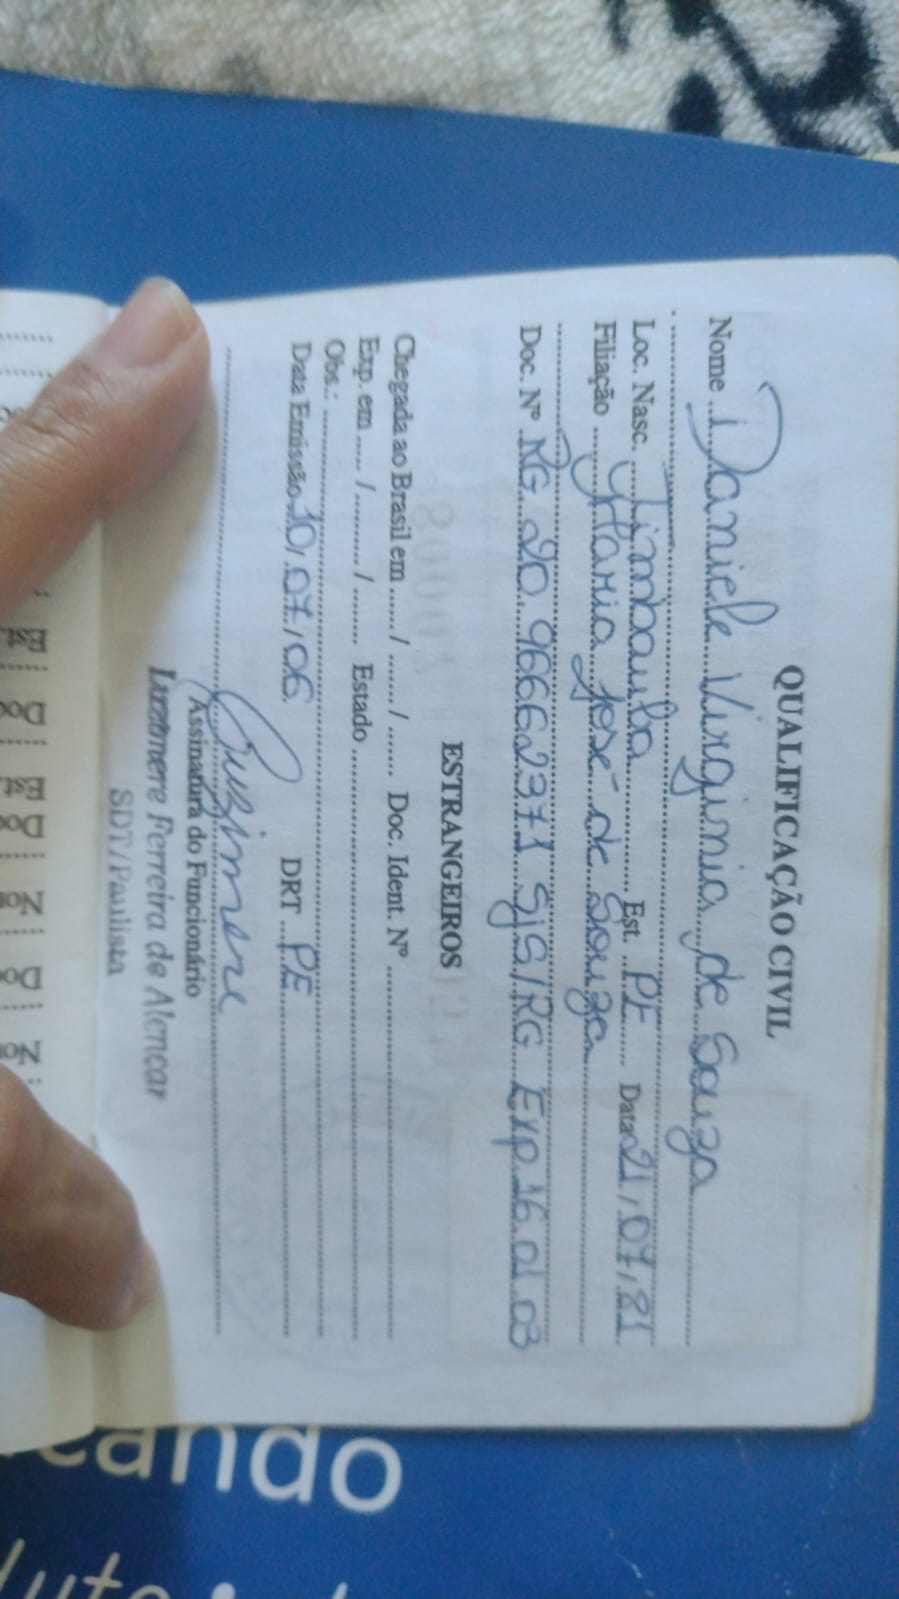 QUALIFICAÇÃO CIVIL
Nome Daniele Virginia de Souza
Loc. Nasc. Timbauba Est. PE Data 21/07/81
Filiação Maria José de Souza
Doc. Nº RG 20.96662371 SJS/RG Exp.16.01.03
ESTRANGEIROS
Chegada ao Brasil em ...... / ....... / ....... Doc. Ident. Nº
Exp. em ..... /.......... / ........ Estado
Obs.:
Data Emissão 10/07/06 DRT PE
Luzimere
Assinatura do Funcionário
Luzimere Ferreira de Alencar
SDT/Paulista
Est.
Doc
Est.
Doc
No
Do
No
cando